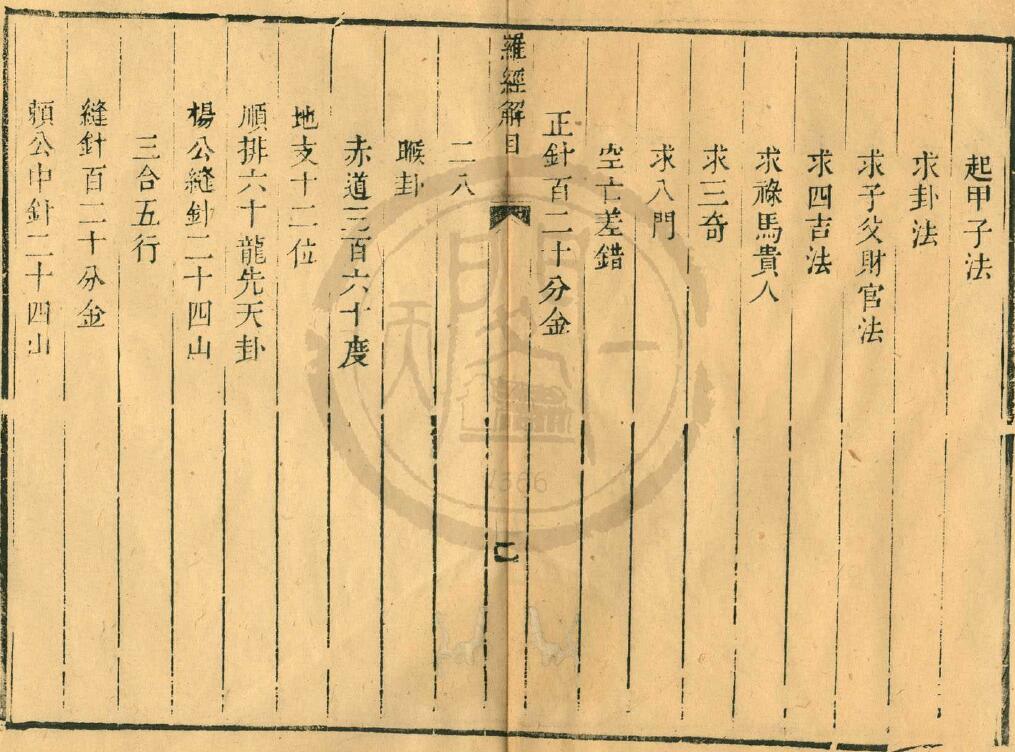 起甲子法
求卦法
求子父財官法
求四吉法
求祿馬貴人
求三奇
求八門
空亡差錯
正針百二十分金
羅經解目
二八
㬋卦
赤道三百六十度
地支十二位
順排六十龍先天卦
楊公縫針二十四山
三合五行
縫針百二十分金
賴公中針二十四山